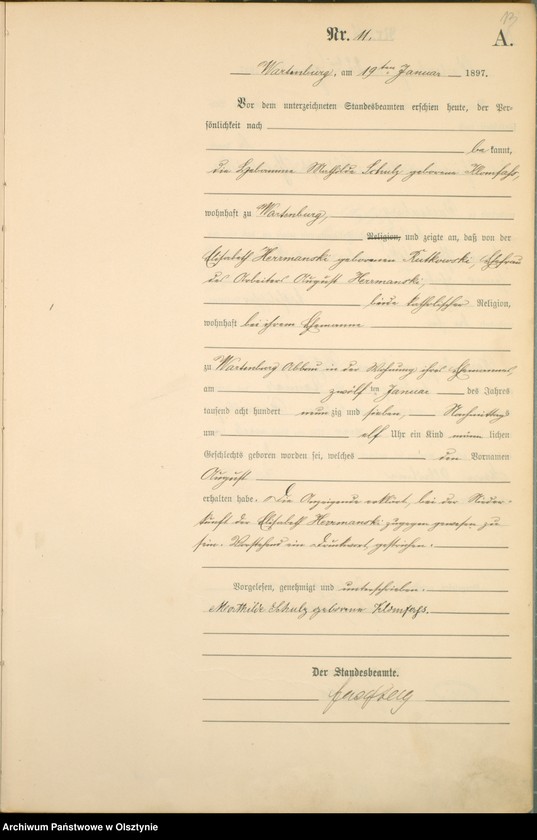 Nr. 11.
A.
Wartenburg, am 19ten Januar 1897.
Vor dem unterzeichneten Standesbeamten erschien heute, der Per-
sönlichkeit nach
bekannt,
die Hebamme Mathilde Schulz geborene Klomfass,
wohnhaft zu Wartenburg,
Religion, und zeigte an, daß von der
Elisabeth Herrmanski geborenen Rutkowski, Ehefrau
des Arbeiters August Herrmanski,
beide katholischer Religion,
wohnhaft bei ihrem Ehemanne
zu Wartenburg Abbau in der Wohnung ihres Ehemannes,
am zwölften Januar des Jahres
tausend acht hundert neunzig und sieben, Nachmittags
um elf Uhr ein Kind männlichen
Geschlechts geboren worden sei, welches den Vornamen
August
erhalten habe. Die Anzeigende erklärt, bei der Nieder-
kunft der Elisabeth Herrmanski zugegen gewesen zu
sein. Vorstehend ein Druckwort gestrichen.
Vorgelesen, genehmigt und unterschrieben.
Mathilde Schulz geborene Klomfass.
Der Standesbeamte.
Archiwum Państwowe w Olsztynie